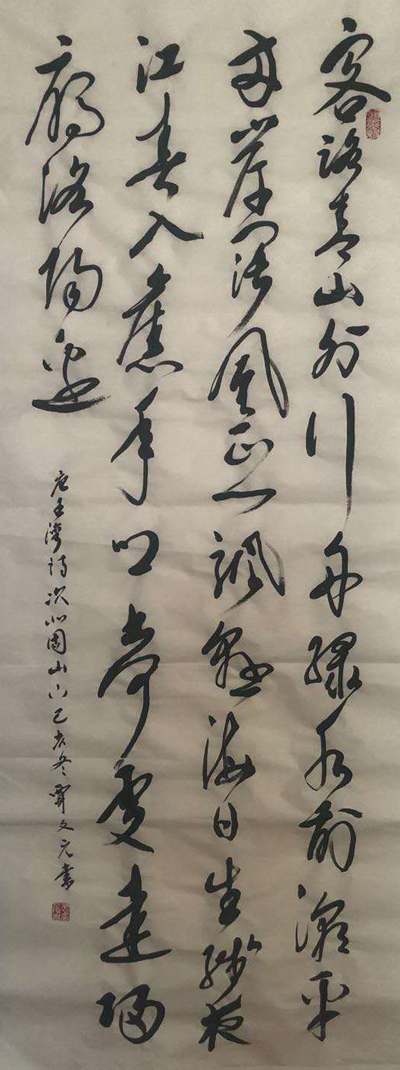 客路青山外行舟綠水前潮平
兩岸闊風正一帆懸海日生殘夜
江春入舊年鄉書何處達歸
雁洛陽邊
唐王灣詩次北固山下己亥冬文元書